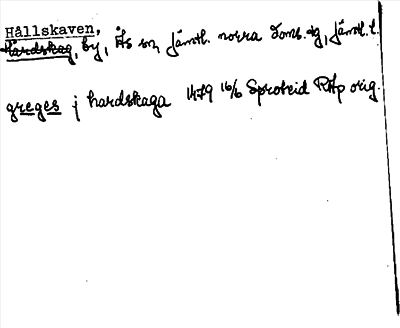 Hållskaven,
Hårdskag, by, Ås sn, Jämtl. norra doms.dg, Jämtl. l.
greges j hardskaga 1479 16/6 Sproteid RAp orig.